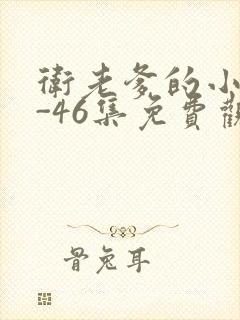 衛老爹的小
-46集免費觀
骨兔耳